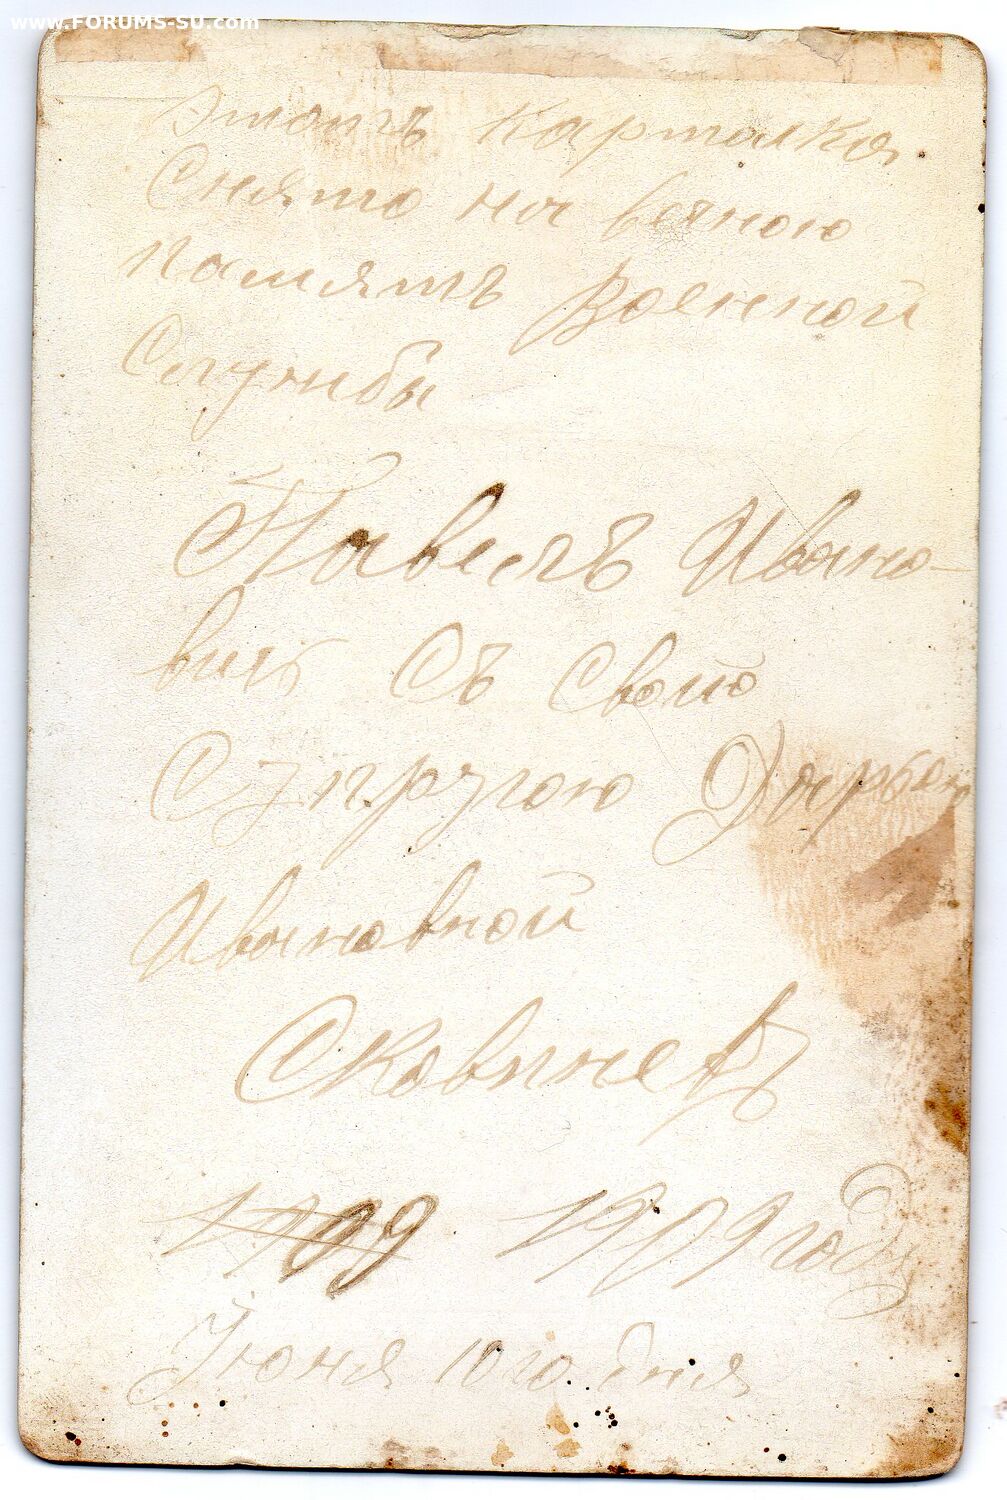 www.FORUMS-SU.com
Этотъ карточка
Снято на вечную
памятъ Военной
Службы
Павелъ Ивано-
вичъ Съ Своiо
Супругою Дарьею
Ивановной
Сковпневъ
1909 1909 году
Iюня 10го дня